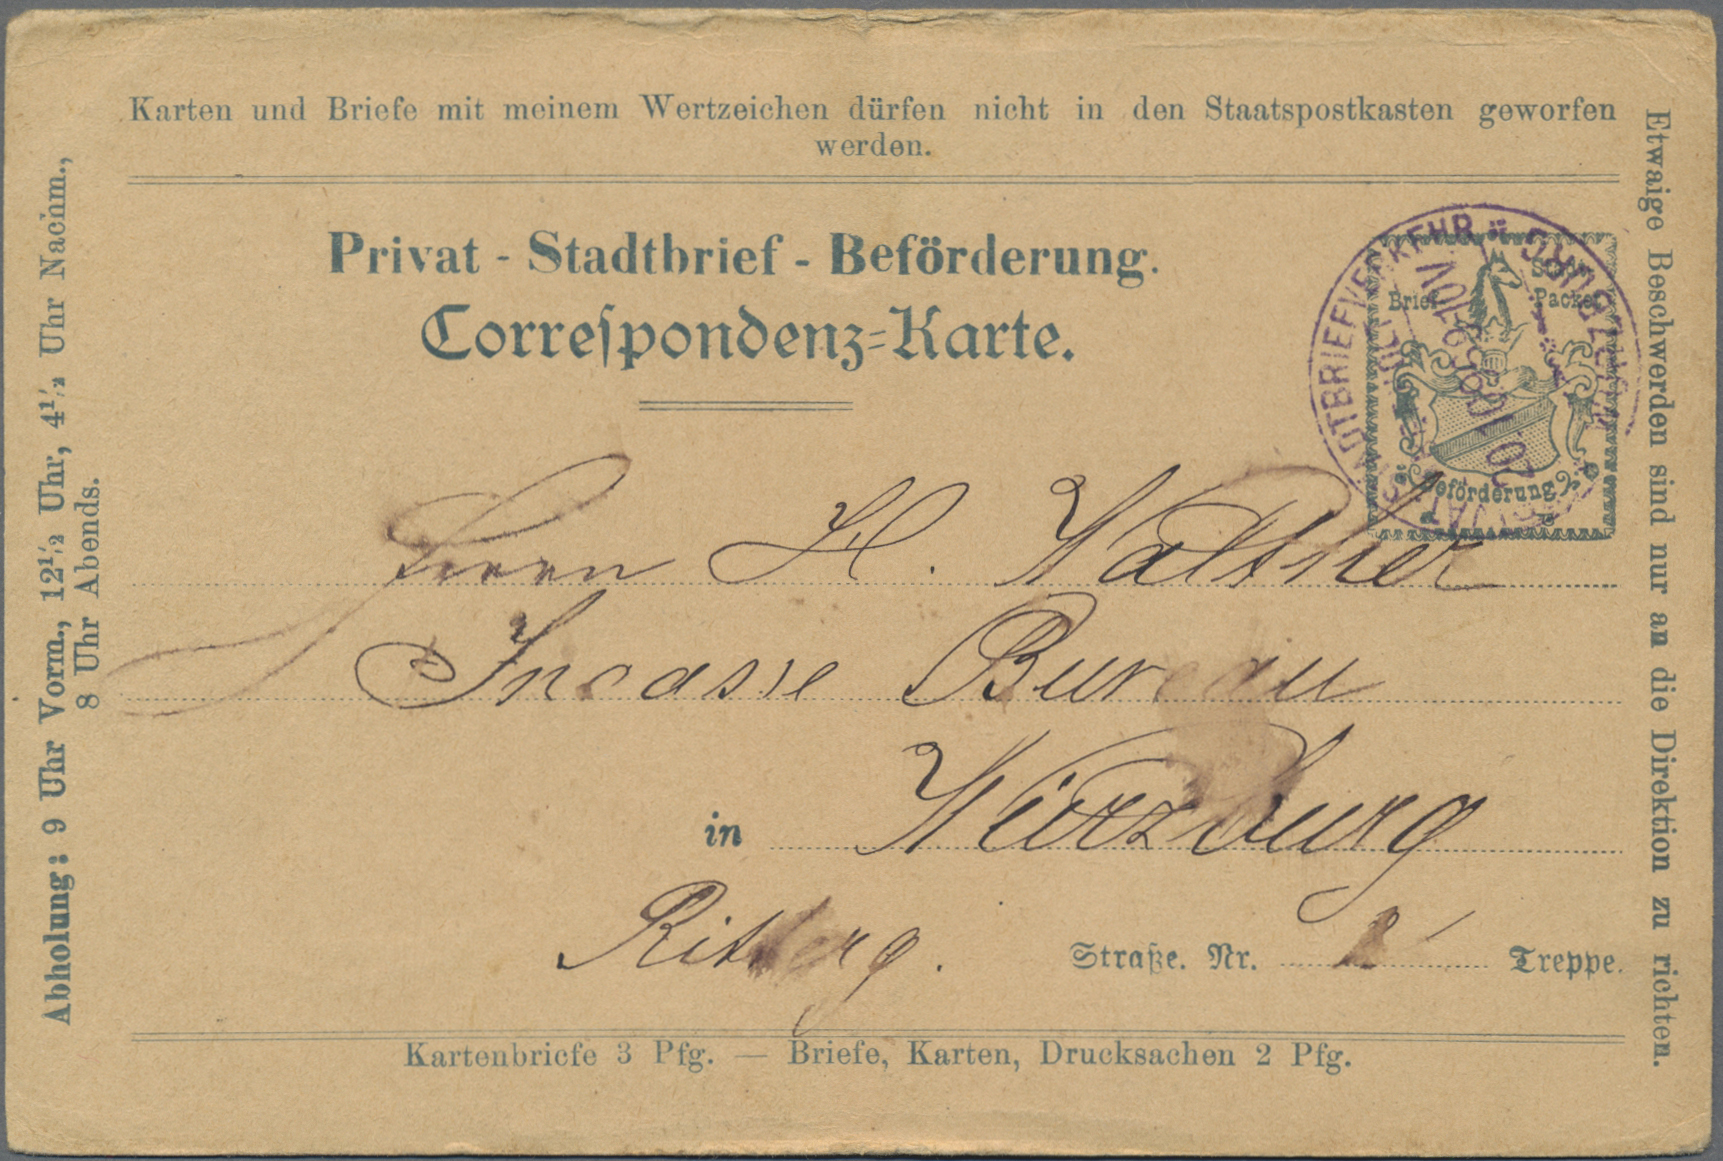 Karten und Briefe mit meinem Wertzeichen dürfen nicht in den Staatspostkasten geworfen
werden.
Privat - Stadtbrief - Beförderung.
Correſpondenz=Karte.
Brief
Packet
Beförderung
STADTBRIEFVERKEHR
WÜRZBURG
Herrn H. Walther
Incasse Bureau
in Würzburg
Straße. Nr. 2 Treppe.
Kartenbriefe 3 Pfg. — Briefe, Karten, Drucksachen 2 Pfg.
Abholung: 9 Uhr Vorm., 12½ Uhr, 4½ Uhr Nachm.,
8 Uhr Abends.
Etwaige Beschwerden sind nur an die Direktion zu richten.